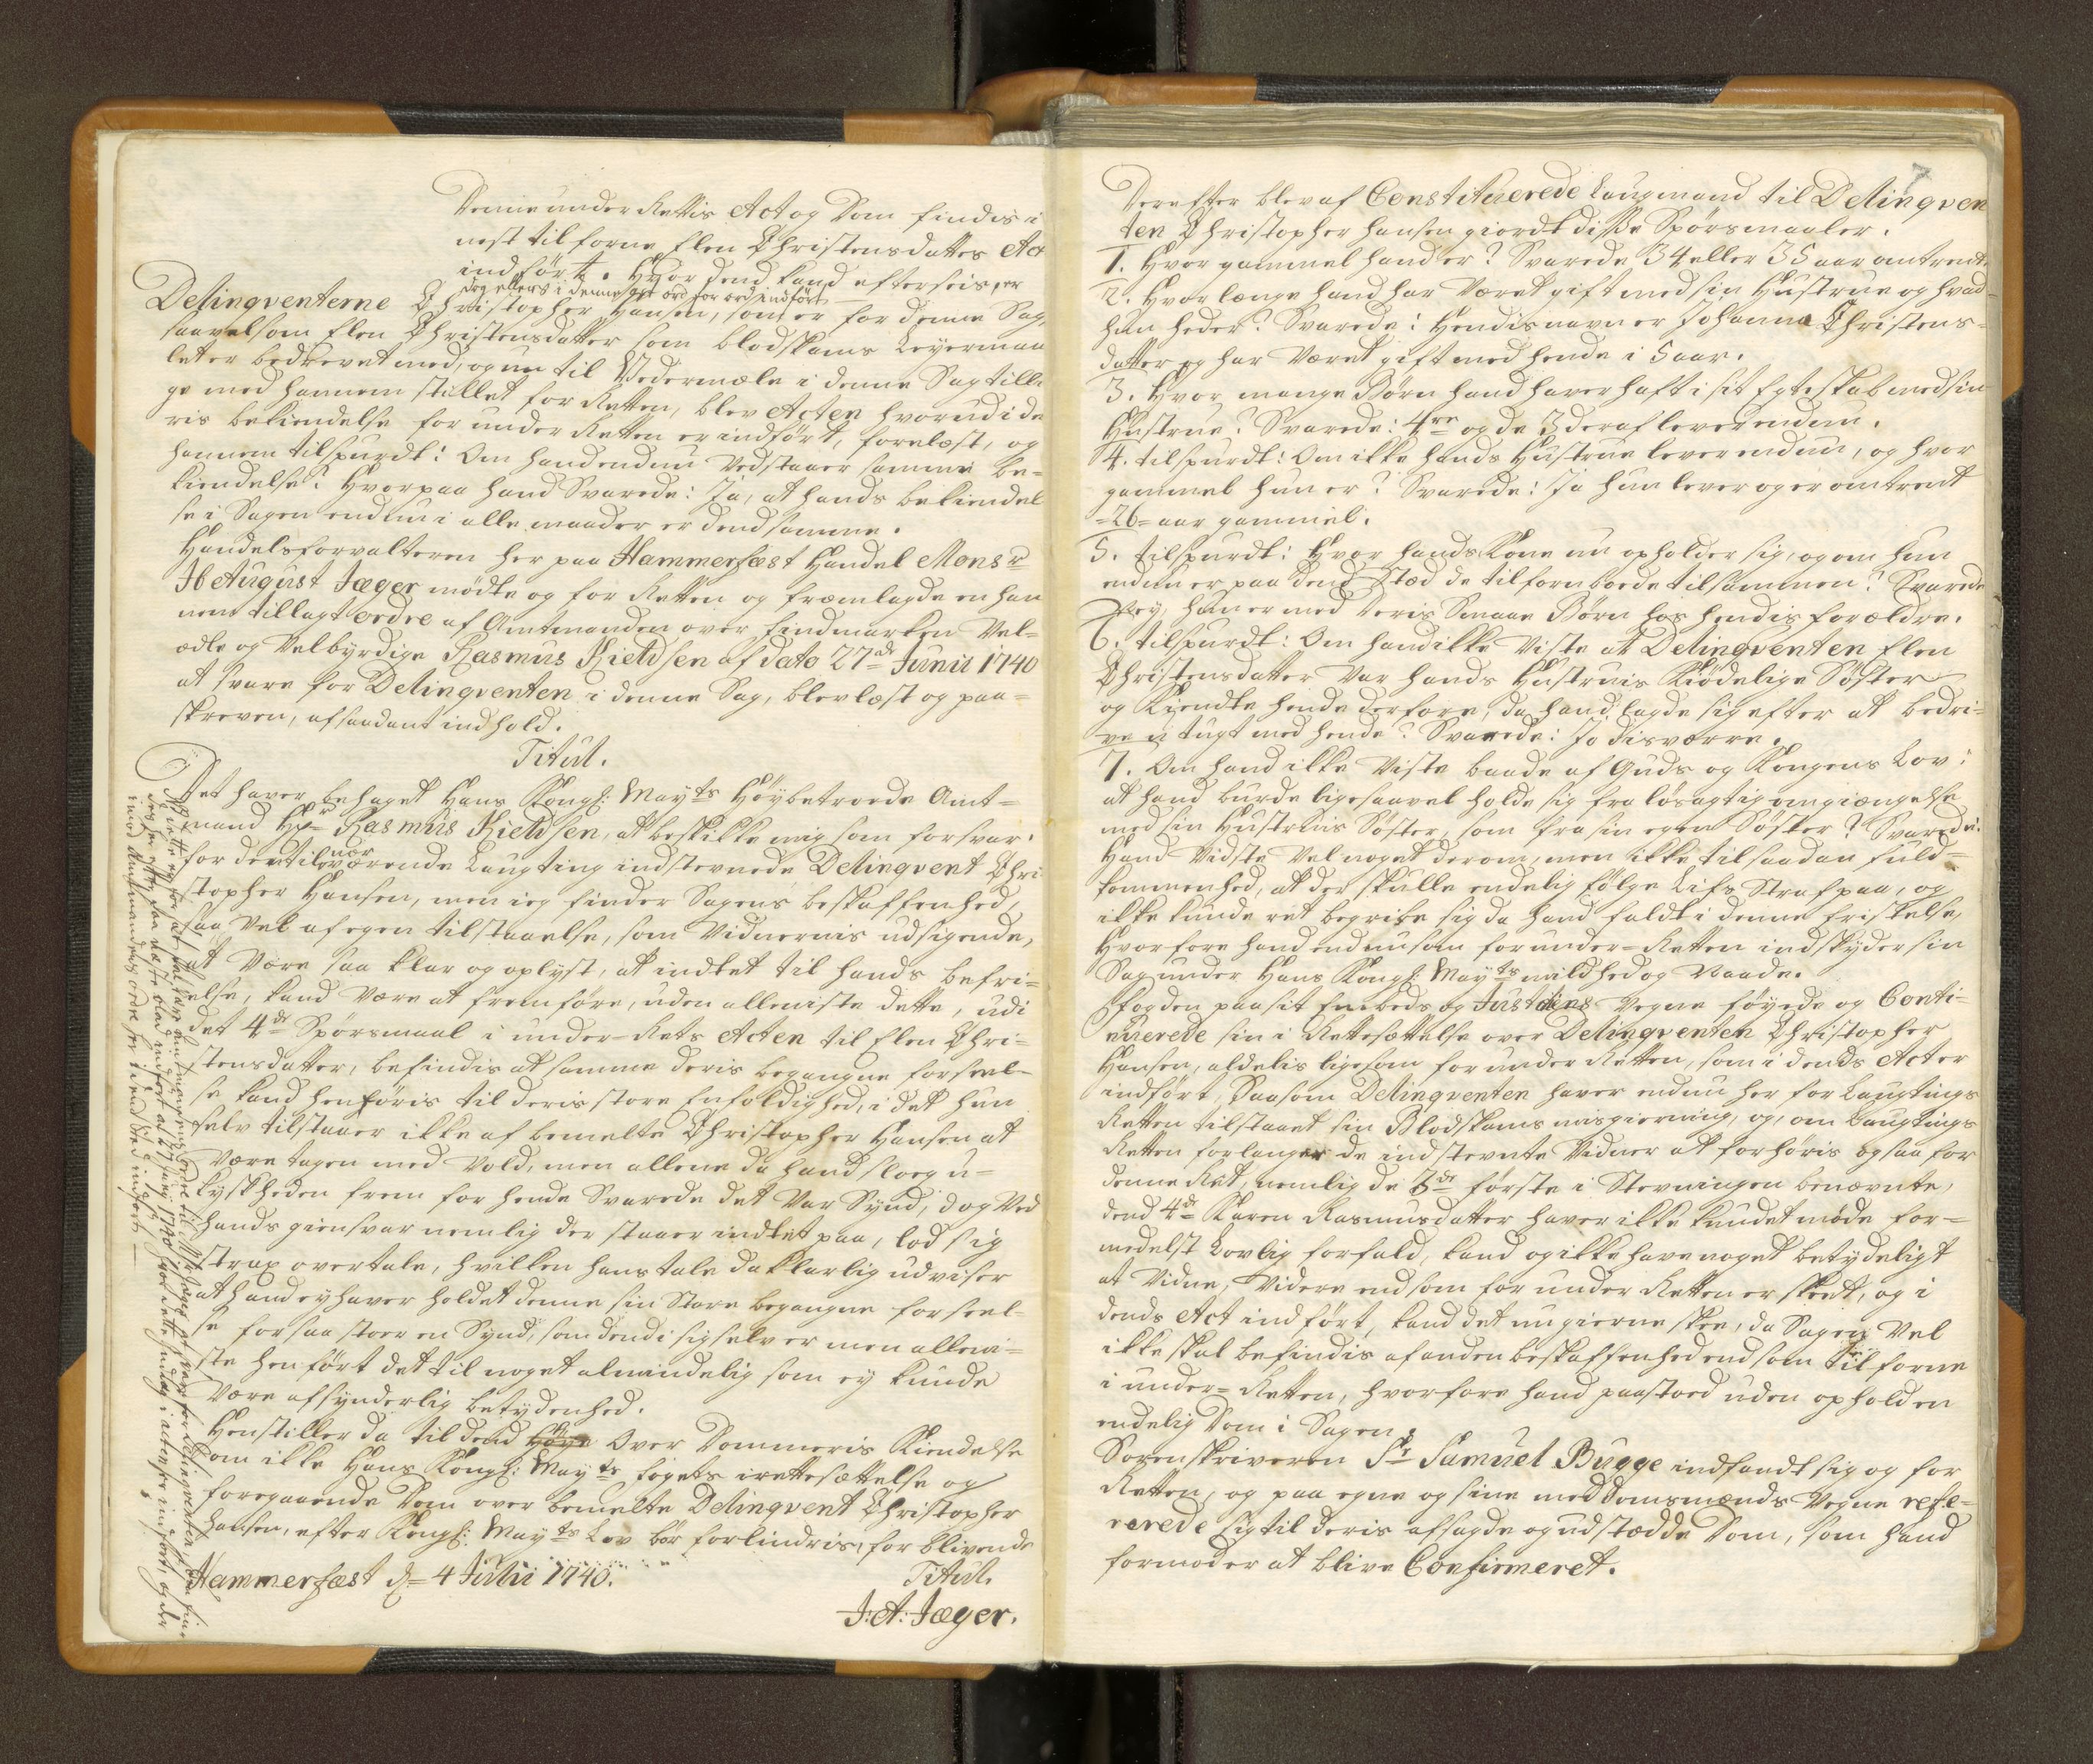 Denne under Rettis Act og Dom findis i
nest tilforne Elen Christensdatters Act
indført. Hvor dend kand efterseis, er
dog ellers i denne Act ord for ord indført
Delinqventerne Christopher Hansen, som er for denne Sag,
saavelsom Elen Christensdatter som blodskams Leyermaal
let er bedrevet med, og nu til Vedermæle i denne Sag tilli-
ge med hannem stillet for Retten, blev Acten hvorudi de
ris bekiendelse for under Retten er indført, forelæst, og
hannem tilspurdt: Om hand endnu Vedstaaer samme be-
kiendelse? Hvorpaa hand Svarede: Ja, at hands bekiendel
se i Sagen endnu i alle maader er dend samme.
Handelsforvalteren her paa Hammerfæst Handel Monsr
H August Jæger mødte og for Retten og fremlagde en han
nem tillagt ordre af Amtmanden over Findmarken Vel-
ædle og Velbyrdige Rasmus Kieldsen af dato 27de Junii 1740
at svare for Delinqventen i denne Sag, blev læst og paa-
skreven, af saadant indhold.
Titul.
Det haver behaget Hans Kongl: Mayts Høybetroede Amt-
mand Hr Rasmus Kieldsen, at beskikke mig som forsvar
for den tilværende Laugting indstevnede Delinqvent Chri-
nær
stopher Hansen, men ieg finder Sagens beskaffenhed,
saa Vel af egen tilstaaelse, som Vidnernis udsigende,
at være saa klar og oplyst, at indtet til hands befri-
else, kand være at fremføre, uden alleniste dette, udi
det 4de Spørsmaal i under-Rets Acten til Elen Chri-
stensdatter, befindis at samme deris begangne forseel-
se kand henføris til deris store Enfoldighed, i det hun
selv tilstaaer ikke af bemelte Christopher Hansen at
være tagen med Vold, men allene da hand sloeg u-
kyskheden frem for hende Svarede det Var Synd, dog Ved
hands giensvar nemlig der staaer indtet paa, lod sig
strax overtale, hvilken hans tale da klarlig udviser
at hand ey haver holdet denne sin Store begangne forseel-
se for saa stoer en Synd, som dend i sig selv er men alleni-
ste henført det til noget almindelig som ey kunde
være af synderlig betydenhed.
Henstiller da til dend Høye Over Dommeris Kiendelse
om ikke Hans Kongl: Mayts fogets irettesættelse og
foregaaende Dom over bemelte Delinqvent Christopher
Hansen, efter Kongl: Mayts Lov bør forlindris, forblivende
Hammerfæst d= 4 Julii 1740.
Titul.
J: A: Jæger.
7
Derefter blev af Constituerede Laugmand til Delinqven
ten Christopher Hansen giordt disse Spørsmaaler.
1. Hvor gammel hand er? Svarede 34 eller 35 aar omtrent.
2. Hvor længe hand har Været gift med sin Hustrue og hvad
hun heder? Svarede: Hendis navn er Johanna Christens-
datter og har Været gift med hende i 5 aar.
3. Hvor mange Børn hand haver haft i sit Egteskab med sin
Hustrue? Svarede: 4re og de 3 deraf lever endnu.
4. tilspurdt: Om ikke hands Hustrue lever endnu, og hvor
gammel hun er? Svarede: Ja hun lever og er omtrent
=26= aar gammel.
5. tilspurdt: Hvor hands Kone nu opholder sig, og om hun
endnu er paa dend Stæd de tilforn boede tilsammen? Svarede
Ney, hun er med deris Smaae Børn hos hendis forældre.
6. tilspurdt: Om hand ikke Viste at Delinqventen Elen
Christensdatter Var hands Hustruis Kiødelige Søster
og Kiendte hende derfore, da hand lagde sig efter at bedri-
ve u tugt med hende? Svarede: Jo disværre.
7. Om hand ikke Viste baade af Guds og Kongens Lov:
at hand burde ligesaavel holde sig fra løsagtig omgiængelse
med sin Hustruis Søster, som fra sin egen Søster? Svarede:
Hand Vidste Vel noget derom, men ikke til saadan fuld-
kommenhed, at der skulle endelig følge Lifs Straf paa, og
ikke kunde ret begribe sig da hand faldt i denne fristelse,
Hvorfore hand endnu som for under-Retten indskyder sin
Sag under Hans Kongl: Mayts mildhed og Naade.
Fogden paa sit Embeds og Justitiens Vegne føyede og Conti-
nuerede sin i Rettesættelse over Delinqventen Christopher
Hansen, aldelis ligesom for under Retten, som i dends Act er
indført, Saasom Delinqventen haver endnu her for Laugtings
Retten tilstaaet sin Blodskams misgierning, og, om Laugtings
Retten forlanger de indstevnte Vidner at forhøris ogsaa for
denne Ret, nemlig de 3de første i Stevningen benævnte,
dend 4de Karen Rasmusdatter haver ikke kundet møde for-
medelst Lovlig forfald, kand og ikke have noget betydeligt
at Vidne, Videre end som for under Retten er skeet, og i
dends Act indført, kand det nu gierne skee, da Sagen Vel
ikke skal befindis af anden beskaffenhed end som tilforne
i under-Retten, hvorfore hand paastoed uden ophold en
endelig Dom i Sagen.
Sorenskriveren Sr Samuel Bugge indfandt sig og for
Retten, og paa egne og sine meddomsmænds Vegne refe-
rerede sig til deris afsagde og udstædde Dom, som hand
formoder at blive Confirmeret.